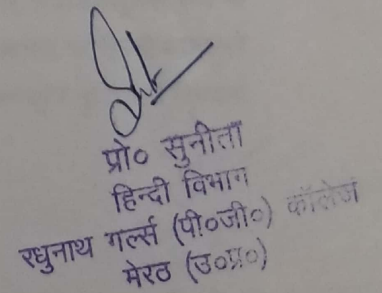 प्रो० सुनीता
हिन्दी विभाग
रघुनाथ गर्ल्स (पी०जी०) कॉलेज
मेरठ (उ०प्र०)